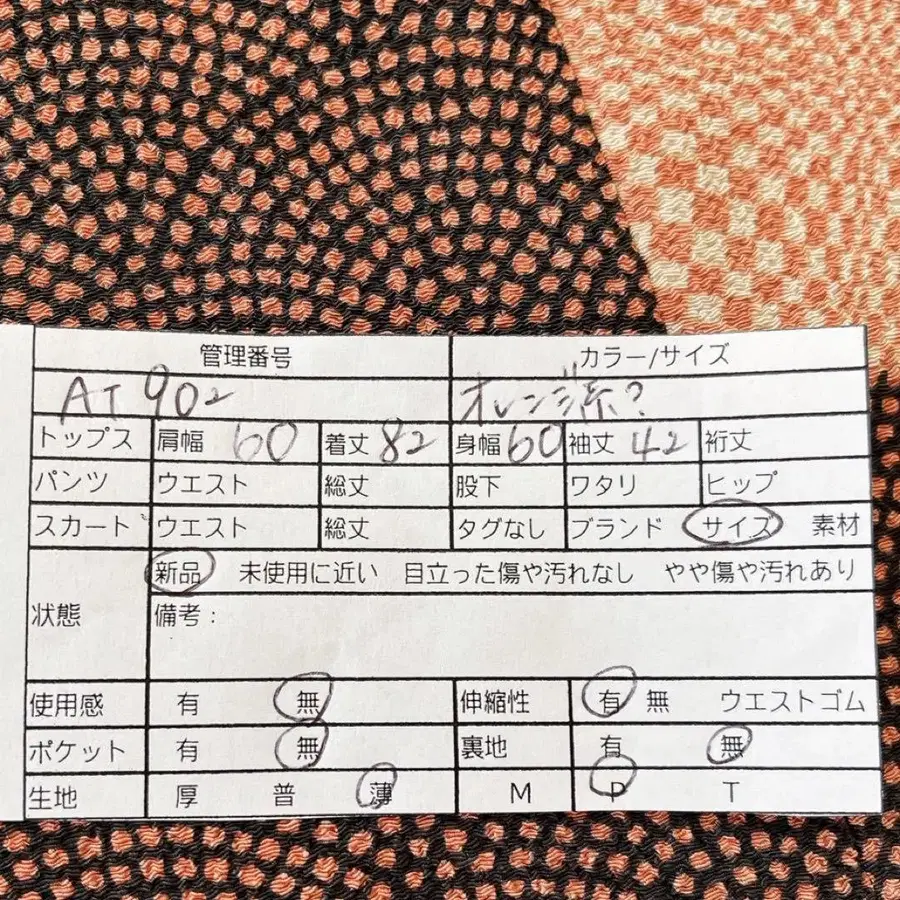 管理番号 カラー/サイズ
AT902 オレンジ系?
トップス 肩幅 60 着丈 82 身幅 60 袖丈 42 裄丈
パンツ ウエスト 総丈 股下 ワタリ ヒップ
スカート ウエスト 総丈 タグなし ブランド サイズ 素材
状態 新品 未使用に近い 目立った傷や汚れなし やや傷や汚れあり
備考:
使用感 有 無 伸縮性 有 無 ウエストゴム
ポケット 有 無 裏地 有 無
生地 厚 普 薄 M P T